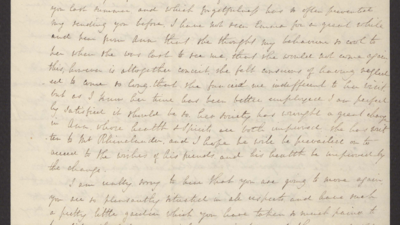 you last summer and which forgetfulness has so often prevented
my sending you before. I have not seen Louisa for a great while
and hear from Anna that she thought my behaviour so cool to
her when she was last to see me, that she would not come again
this, however is altogether conceit, she felt conscious of having neglect
ed to come so long that she fancied me indifferent to her visit
but as I know her time has been better employed I am perfect
ly satisfied it should be so her society has wrought a great change
in him whose health & spirits are both improved she has writ
ten to Mr Rhinelander, and I hope he will be prevailed on to
accede to the wishes of his friends and his health be improved by
the change.
I am really sorry to hear that you are going to move again
you are so pleasantly situated in all respects and have made
a pretty little garden which you have taken so much pains to